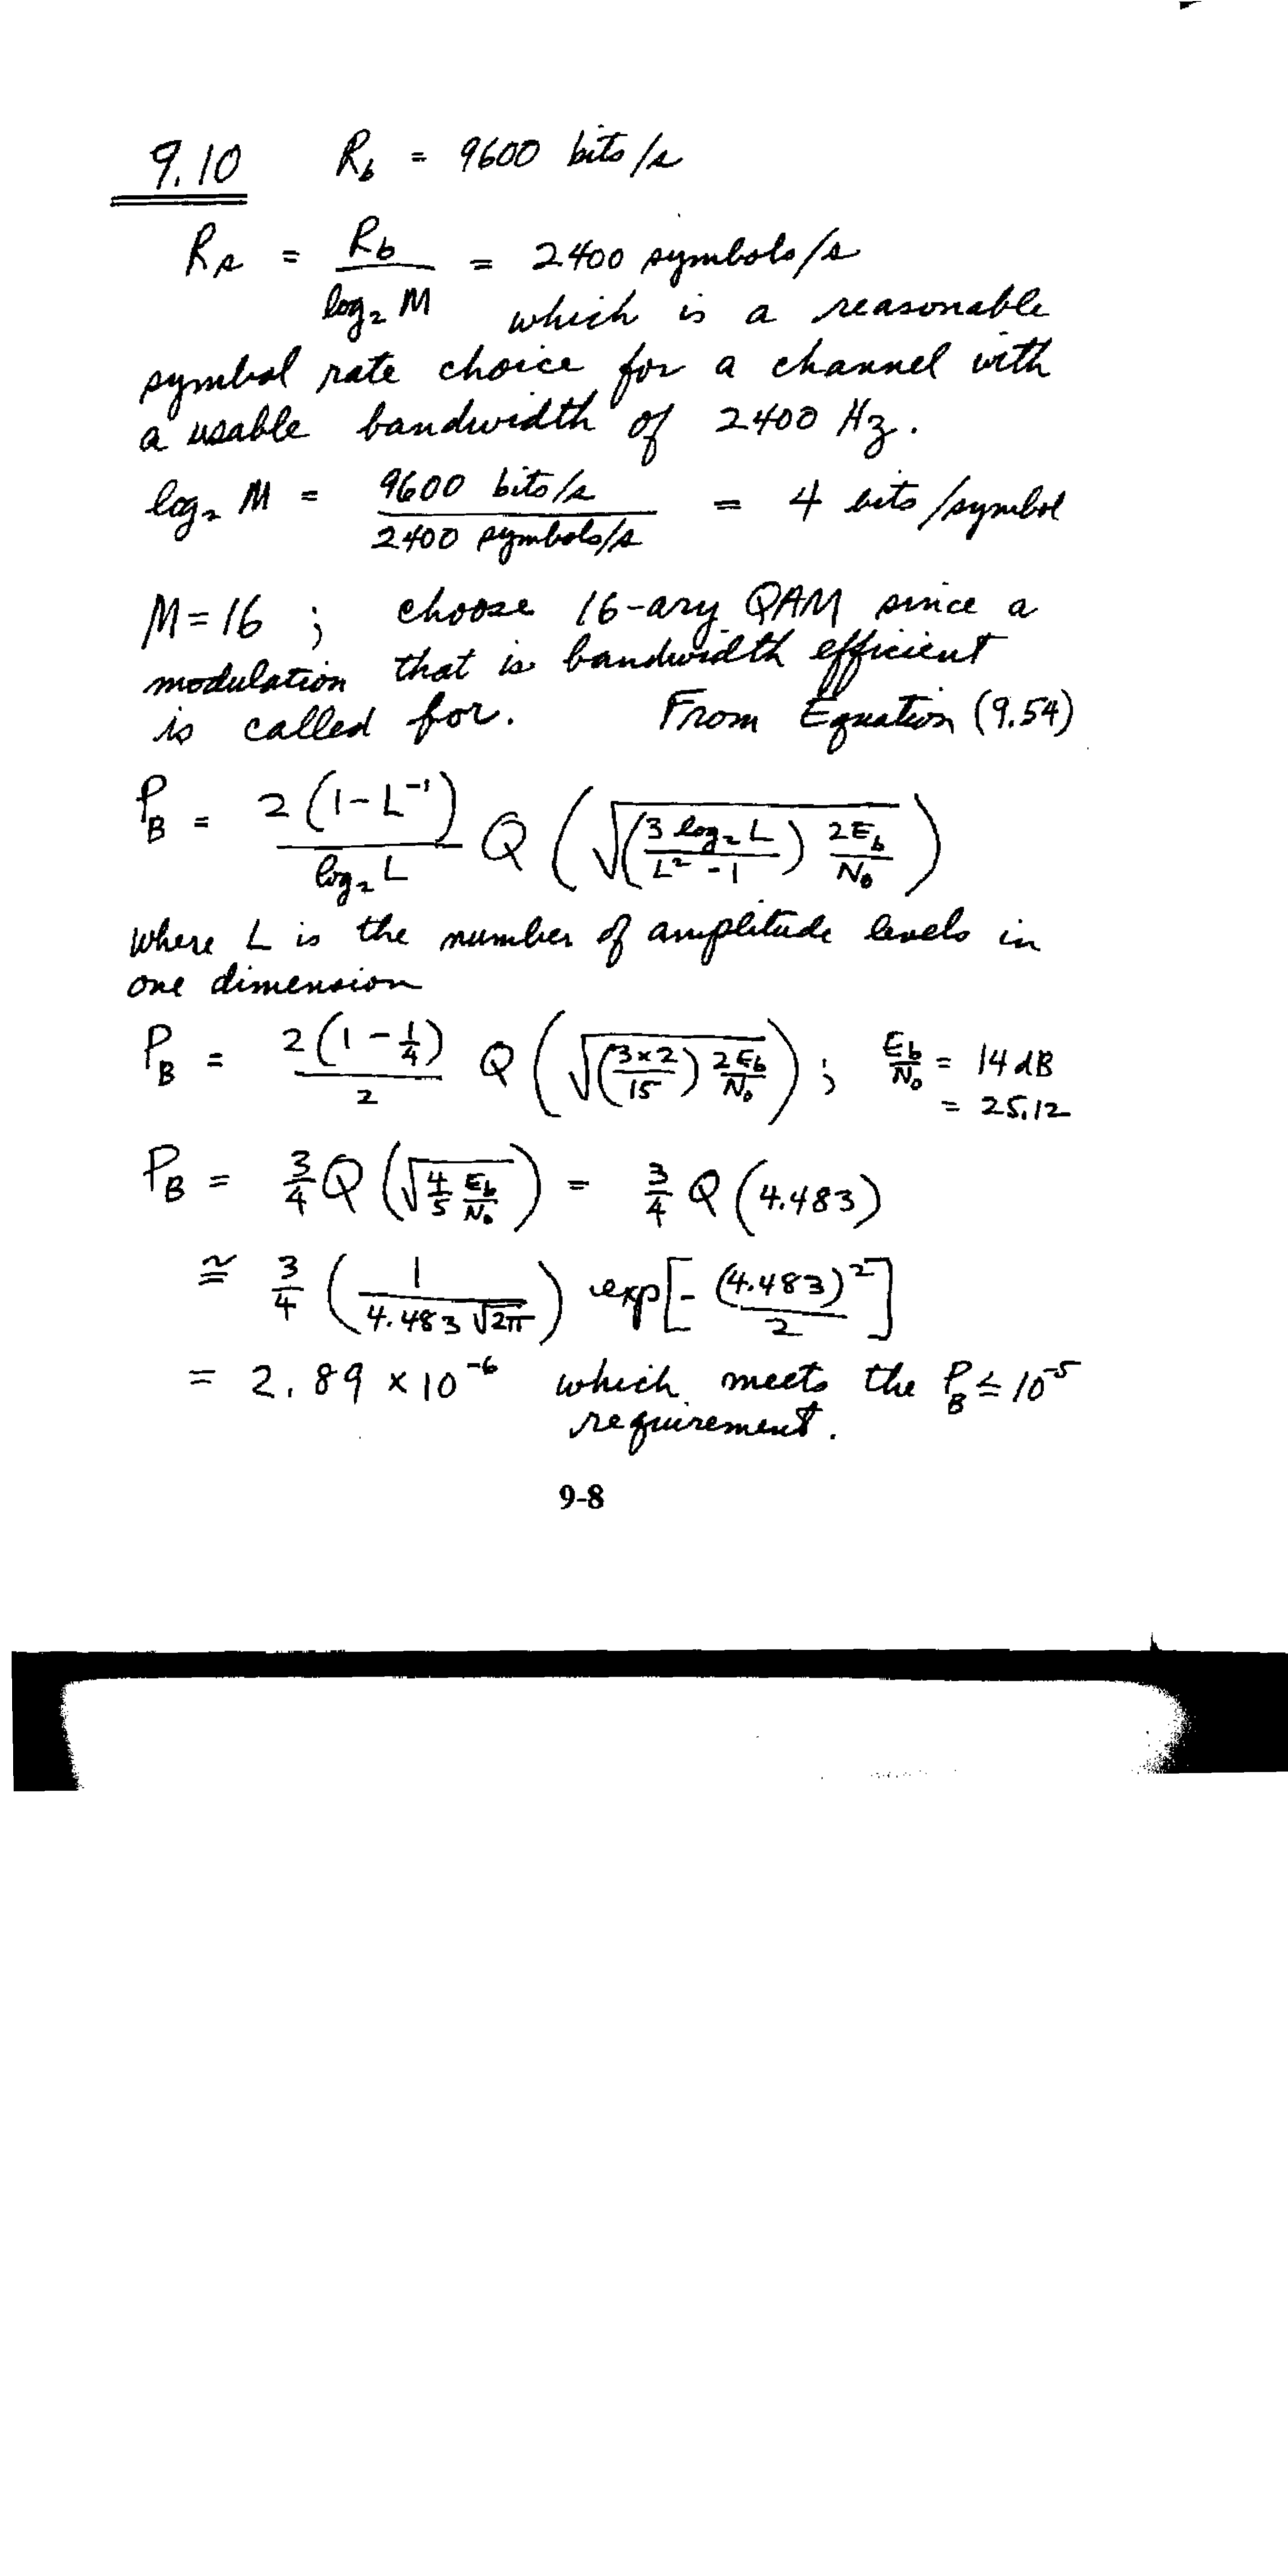 9.10 R_b = 9600 bits/s
R_s = R_b / log₂ M = 2400 symbols/s
which is a reasonable
symbol rate choice for a channel with
a usable bandwidth of 2400 Hz.
log₂ M = 9600 bits/s / 2400 symbols/s = 4 bits/symbol
M = 16 ; choose 16-ary QAM since a
modulation that is bandwidth efficient
is called for. From Equation (9.54)
P_B = 2(1 - L⁻¹) / log₂ L Q(√((3 log₂ L / L² - 1) 2E_b / N₀))
where L is the number of amplitude levels in
one dimension
P_B = 2(1 - 1/4) / 2 Q(√((3×2 / 15) 2E_b / N₀)) ; E_b / N₀ = 14 dB
= 25.12
P_B = 3/4 Q(√(4/5 E_b / N₀)) = 3/4 Q(4.483)
≅ 3/4 (1 / 4.483 √2π) exp[- (4.483)² / 2]
= 2.89 × 10⁻⁶ which meets the P_B ≤ 10⁻⁵
requirement.
9-8